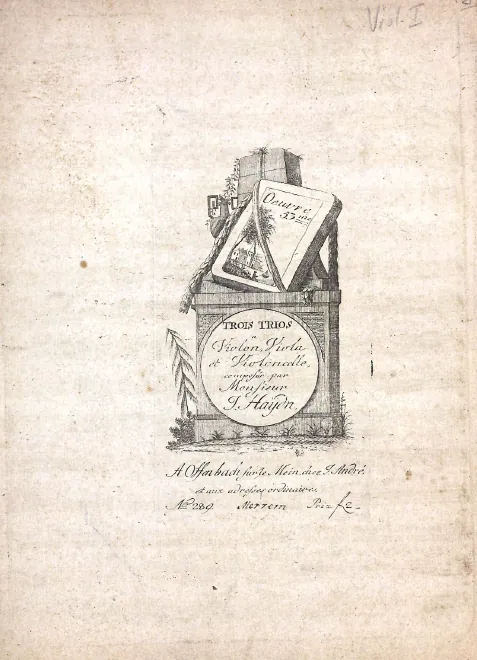 Viol. I
Oeuvre
53me
TROIS TRIOS
a
Violon, Viola
et Violoncelle,
composés par
Monsieur
J. Haÿdn.
A Offenbach sur le Mein, chez J. André.
et aux adresses ordinaires.
No. 289. Metzem Prix f 2 -